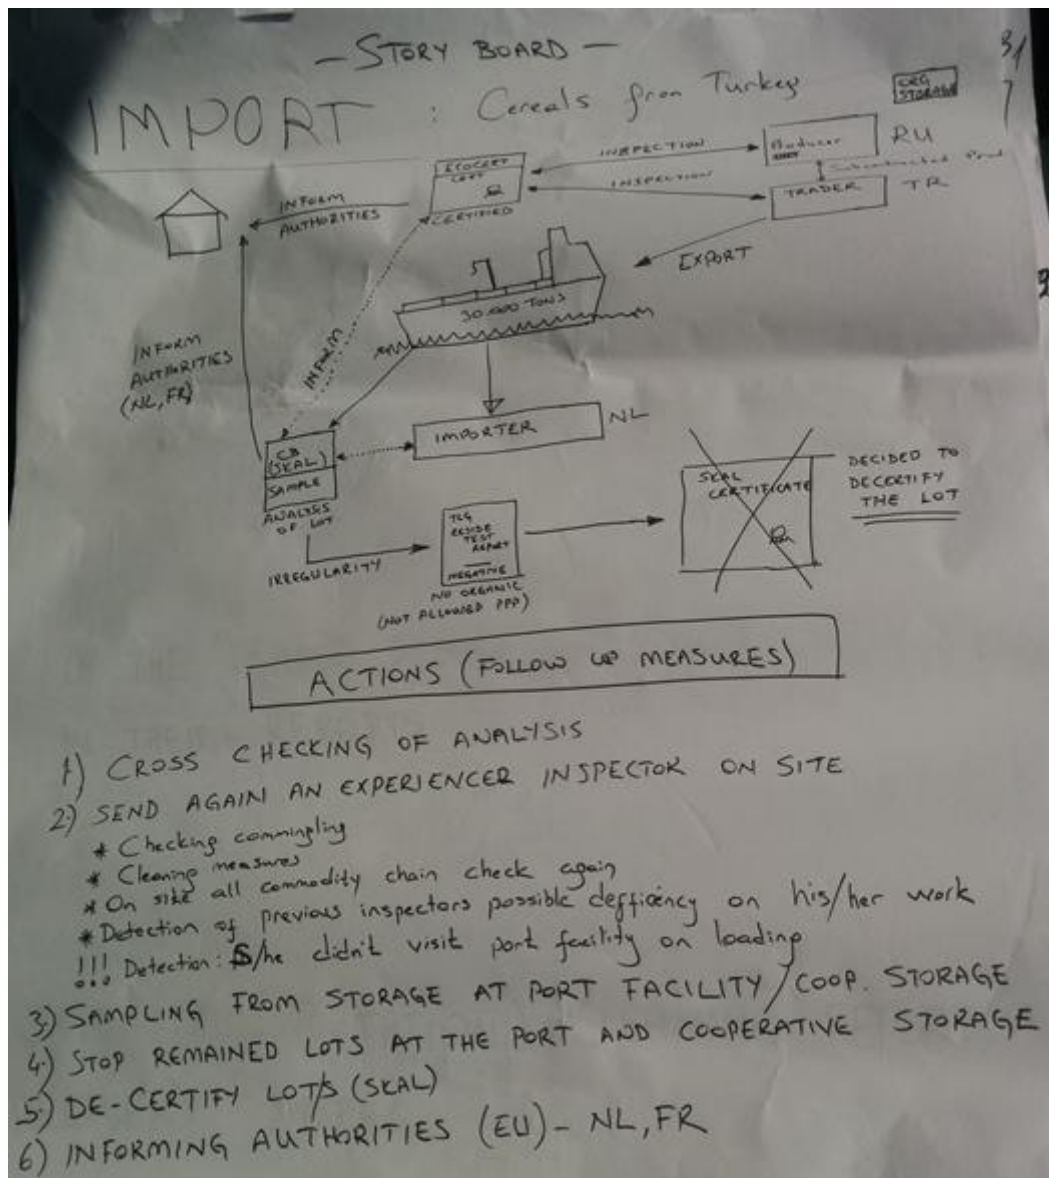 - STORY BOARD -
31
IMPORT : Cereals from Turkey
ORG
STORAGE
ECOCERT
CERT
CERTIFIED
INSPECTION
INSPECTION
Producer
RU
TRADER
TR
INFORM
AUTHORITIES
EXPORT
30.000 TONS
INFORM
AUTHORITIES
(NL, FR)
INFORM
IMPORTER
NL
CB
(SKAL)
SAMPLE
ANALYSIS
OF LOT
IRREGULARITY
RESIDE
TEST
REPORT
NEGATIVE
NO ORGANIC
(NOT ALLOWED PPP)
SKAL
CERTIFICATE
DECIDED TO
DECERTIFY
THE LOT
ACTIONS (FOLLOW UP MEASURES)
1) CROSS CHECKING OF ANALYSIS
2) SEND AGAIN AN EXPERIENCER INSPECTOR ON SITE
* Checking commingling
* Cleaning measures
* On site all commodity chain check again
* Detection of previous inspectors possible defficiency on his/her work
!!! Detection: S/he didn't visit port facility on loading
3) SAMPLING FROM STORAGE AT PORT FACILITY/COOP. STORAGE
4) STOP REMAINED LOTS AT THE PORT AND COOPERATIVE STORAGE
5) DE-CERTIFY LOT/S (SKAL)
6) INFORMING AUTHORITIES (EU) - NL, FR